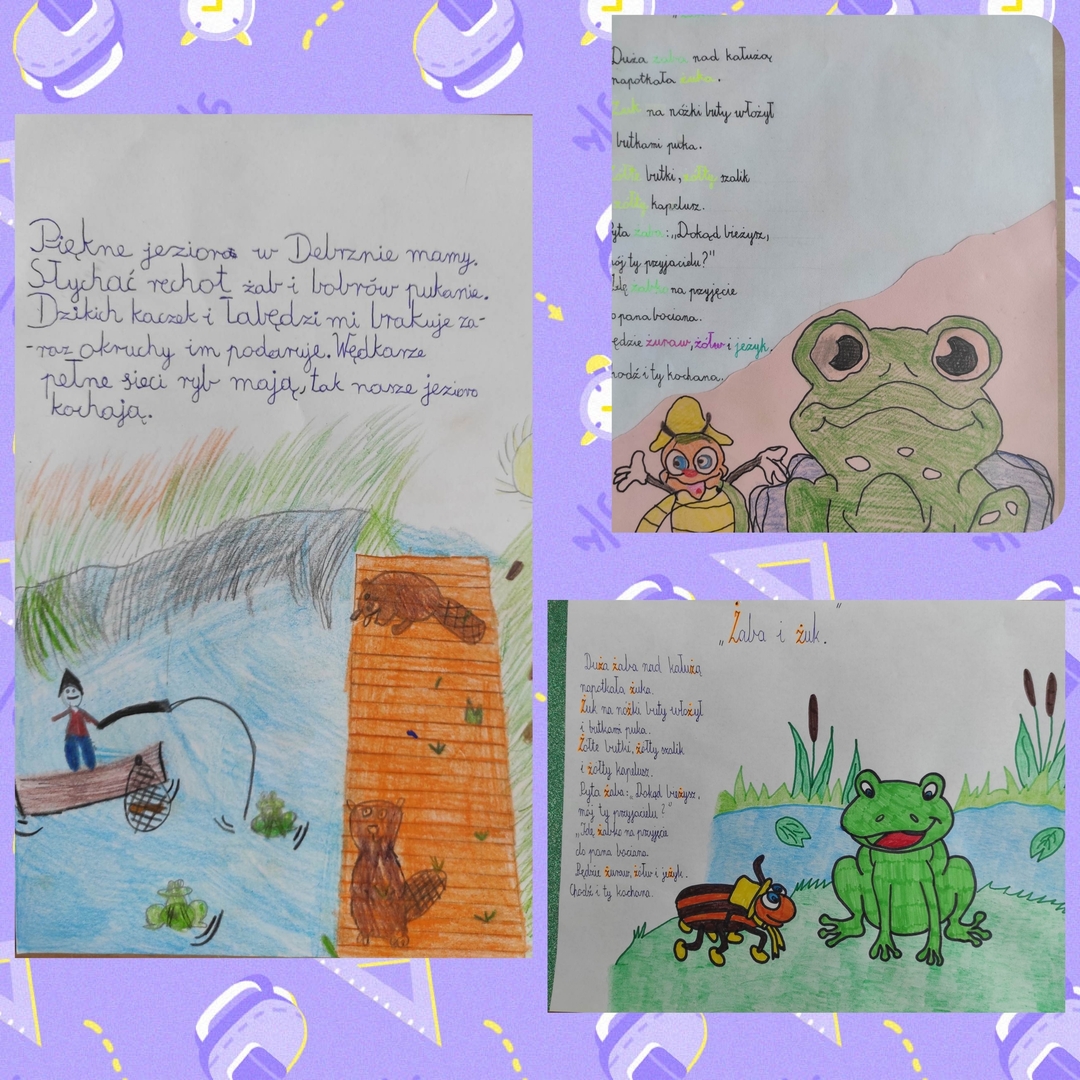 Piękne jeziora w Debrznie mamy.
Słychać rechot żab i bobrów pukanie.
Dzikich kaczek i łabędzi mi brakuje za-
-raz okruchy im podaruje. Wędkarze
pełne sieci ryb mają, tak nasze jezioro
kochają.
Duża żaba nad kałużą
napotkała żuka.
Żuk na nóżki buty włożył
butkami puka.
butki, żółty szalik
żółty kapelusz.
żaba: „Dokąd bieżysz,
ty przyjacielu?"
żabko na przyjęcie
pana bociana.
żuraw, żółw i jeżyk.
i ty kochana.
„Żaba i żuk."
Duża żaba nad kałużą
napotkała żuka.
Żuk na nóżki buty włożył
i butkami puka.
Żółte butki, żółty szalik
i żółty kapelusz.
Pyta żaba: „Dokąd bieżysz,
mój ty przyjacielu?"
„Idę żabko na przyjęcie
do pana bociana.
Będzie żuraw, żółw i jeżyk.
Chodź i ty kochana.